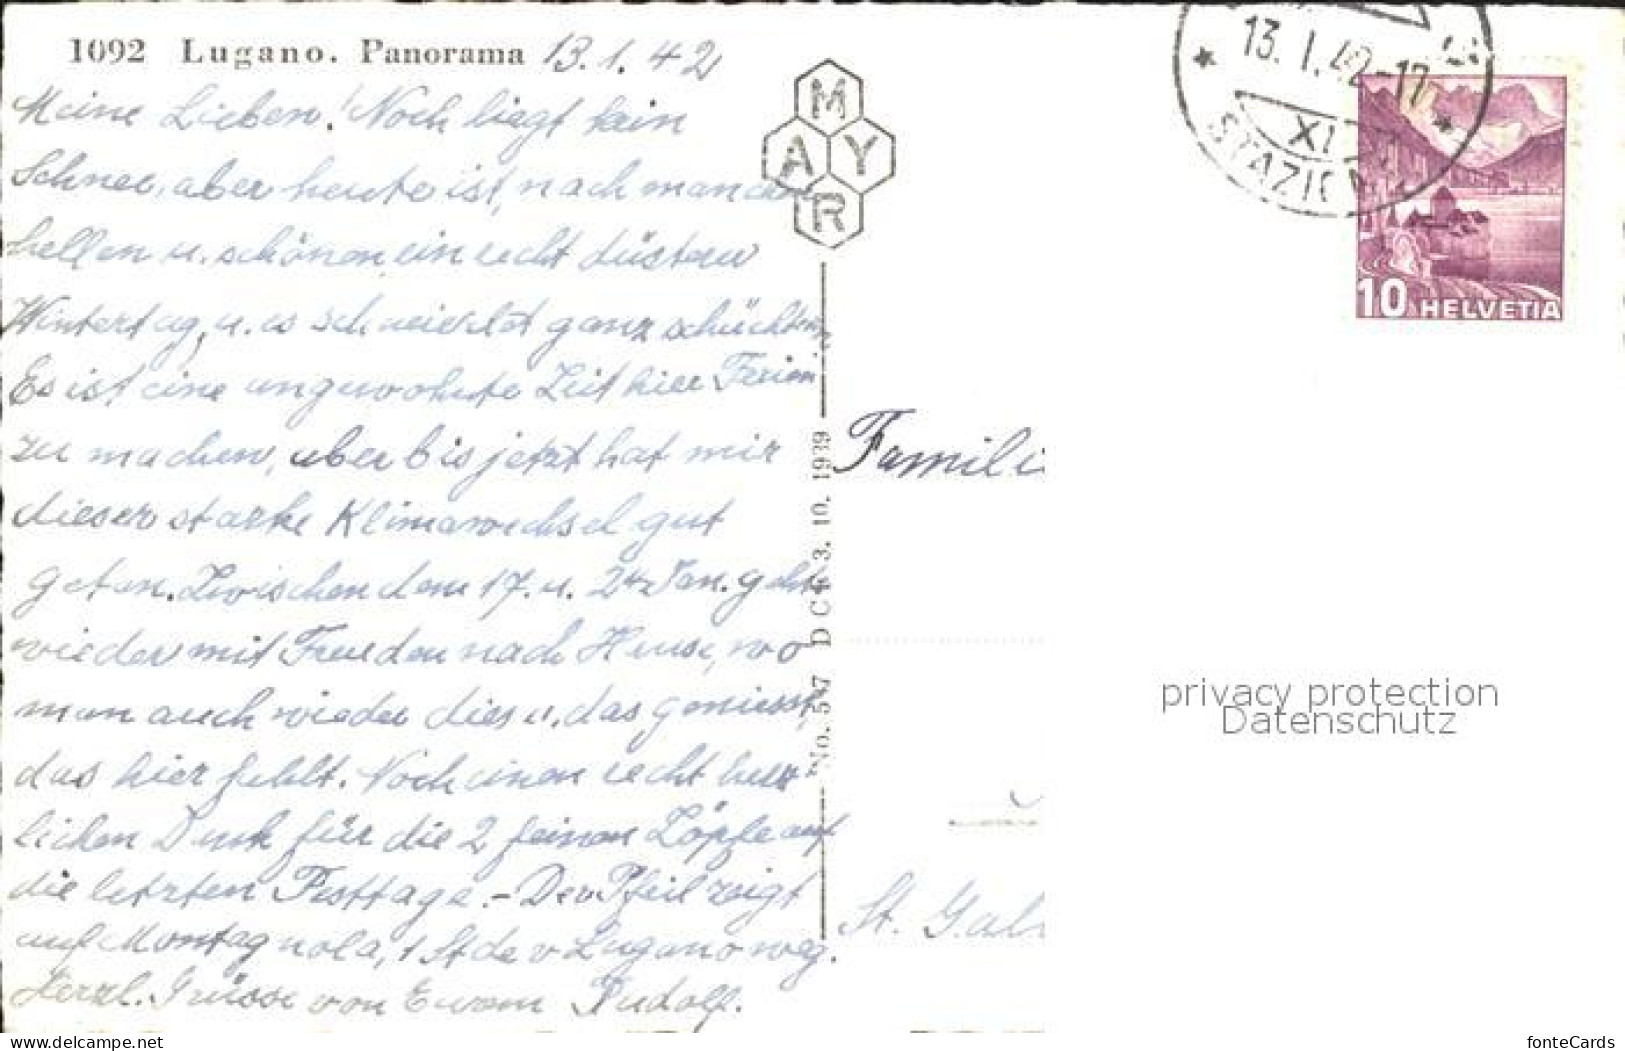 1092 Lugano. Panorama 13.1.42
Meine Lieben! Noch liegt kein
Schnee, aber heute ist, nach manchen
hellen u. schönen, ein recht düsterer
Wintertag, u. es schneielet ganz schüchtern.
Es ist eine ungewohnte Zeit hier Ferien
zu machen, aber bis jetzt hat mir
dieser starke Klimawechsel gut
getan. Zwischen dem 17. u. 24. Jan. geht's
wieder mit Freuden nach Hause, wo
man auch wieder dies u. das geniesst,
das hier fehlt. Noch einen recht herz-
lichen Dank für die 2 feinen Zöpfe auf
die letzten Festtage. - Der Pfeil zeigt
auf Montagnola, 1 Stde v Lugano weg.
Herzl. Grüsse von Eurem Rudolf.
MAYR
No. 547 D C K 3. 10. 1939
13. I. 42-17
XI
STAZIONE
10 HELVETIA
Famili
privacy protection
Datenschutz
St. Gall
www.delcampe.net
fonteCards